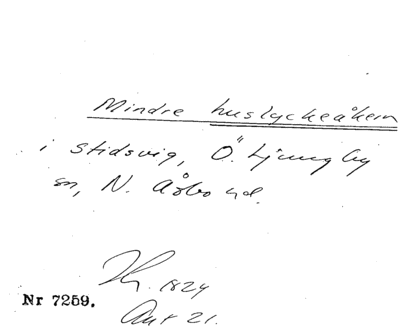 Mindre huslyckeåkern
i Stidsvig, Ö. Ljungby
sn, N. Åsbo hd.
1824
Nr 7259.
Akt 21.